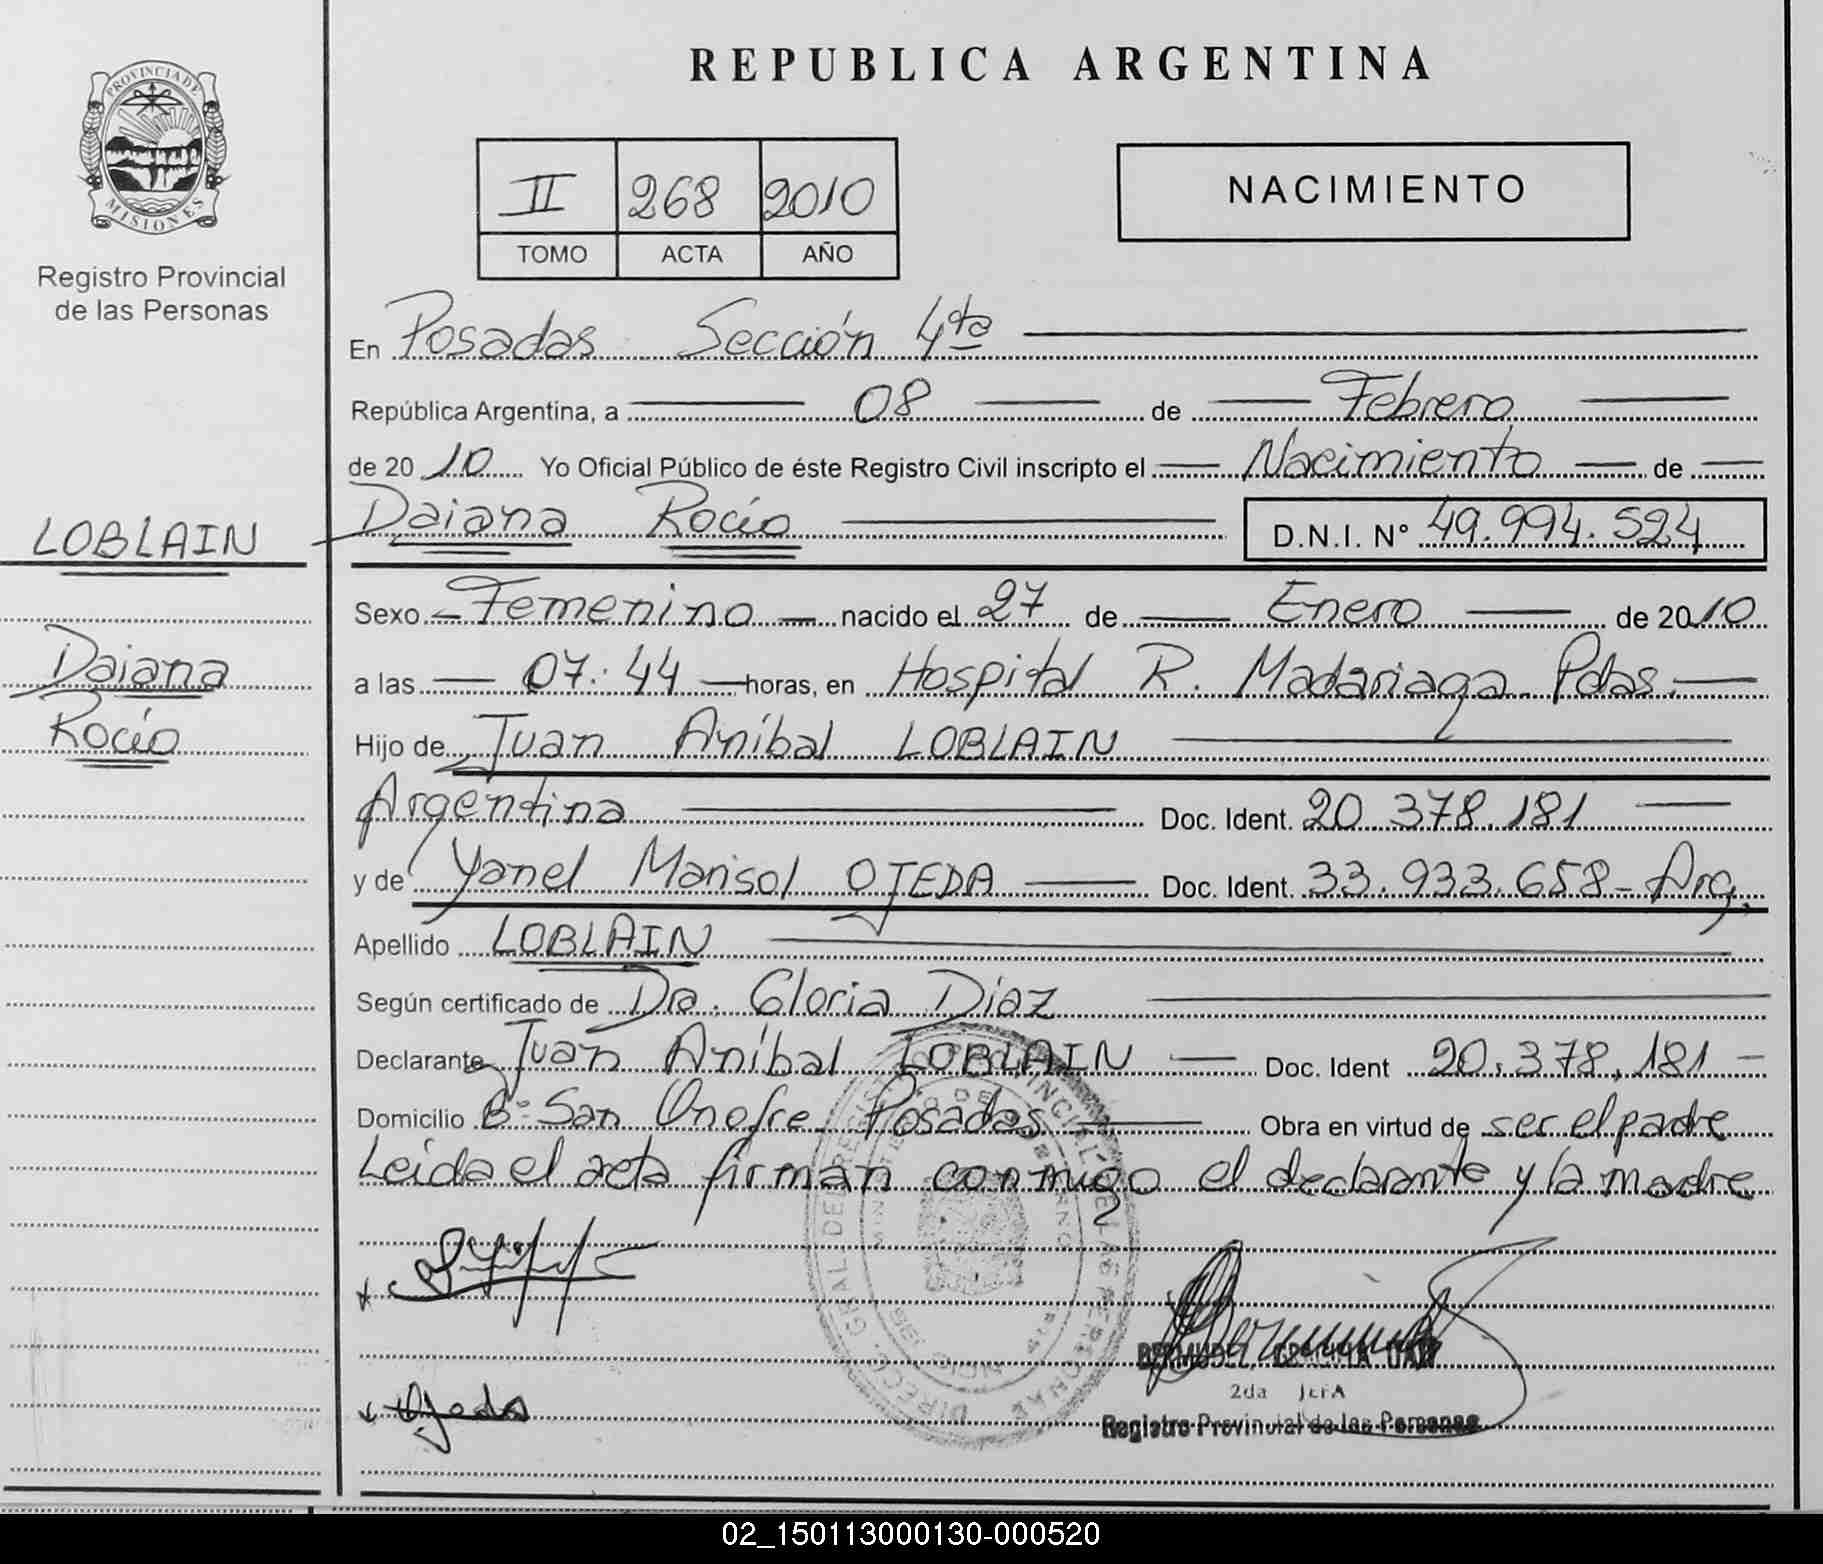 REPUBLICA ARGENTINA
PROVINCIA DE
MISIONES
Registro Provincial
de las Personas
II 268 2010
TOMO ACTA AÑO
NACIMIENTO
En Posadas Sección 4ta
República Argentina, a 08 de Febrero
de 20 10 Yo Oficial Público de éste Registro Civil inscripto el Nacimiento de
LOBLAIN
Daiana Rocío D.N.I. N° 49.994.524
Sexo Femenino nacido el 27 de Enero de 20 10
Daiana
Rocío
a las 07:44 horas, en Hospital R. Madariaga Pdas.
Hijo de Juan Aníbal LOBLAIN
Argentina Doc. Ident. 20 378.181
y de Yanel Marisol OJEDA Doc. Ident. 33.933.658 - Arg.
Apellido LOBLAIN
Según certificado de Dra. Gloria Díaz
Declarante Juan Aníbal LOBLAIN Doc. Ident 20.378.181 -
Domicilio B° San Onofre Posadas Obra en virtud de ser el padre
Leída el acta firman conmigo el declarante y la madre
Ojeda
2da JEFA
Registro Provincial de las Personas
02_150113000130-000520